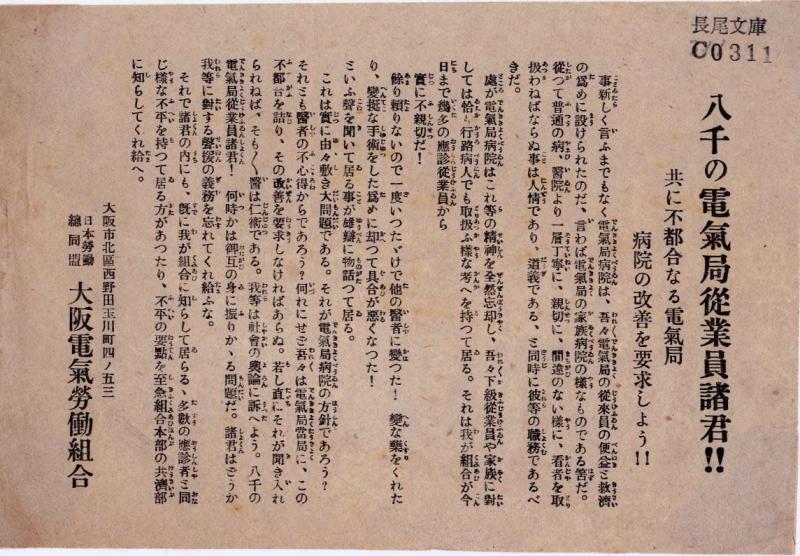 長尾文庫
C0311
八千の電氣局從業員諸君!!
共に不都合なる電氣局
病院の改善を要求しよう!!
事新しく言ふまでもなく電氣局病院は、吾々電氣局の從來員の便益と救濟
の爲めに設けられたのだ、言わば電氣局の家族病院の樣なものである筈だ。
從つて普通の病、醫院より一層丁寧に、親切に、間違のない樣に、看者を取
扱わねばならぬ事は人情であり、道義である、と同時に彼等の職務であるべ
きだ。
處が電氣局病院はこれ等の精神を全然忘却し、吾々下級從業員や家族に對
しては恰も行路病人でも取扱ふ樣な考へを持つて居る。それは我が組合が今
日まで幾多の應診從業員から
實に不親切だ!
餘り頼りないので一度いつたゞけで他の醫者に變つた! 變な藥をくれた
り、變挺な手術をした爲めに却つて具合が惡くなつた!
といふ聲を聞いて居る事が雄辯に物語つて居る。
これは實に由々敷き大問題である。それが電氣局病院の方針であろう?
それとも醫者の不心得からであろう?何れにせよ吾々は電氣局當局に、この
不都合を詰り、その改善を要求しなければあらぬ。若し直にそれが聞き入れ
られねば、そも〳〵醫は仁術である。我等は社會の輿論に訴へよう。八千の
電氣局從業員諸君! 何時かは御互の身に振りかゝる問題だ。諸君はどうか
我等に對する聲援の義務を忘れてくれ給ふな。
それで諸君の内にも、旣に我が組合に知らして居らるゝ多數の應診者と同
じ樣な不平を持つて居る方があつたり、不平の要點を至急組合本部の共濟部
に知らしてくれ給へ。
大阪市北區西野田玉川町四ノ五三
日本勞働
總同盟 大阪電氣勞働組合